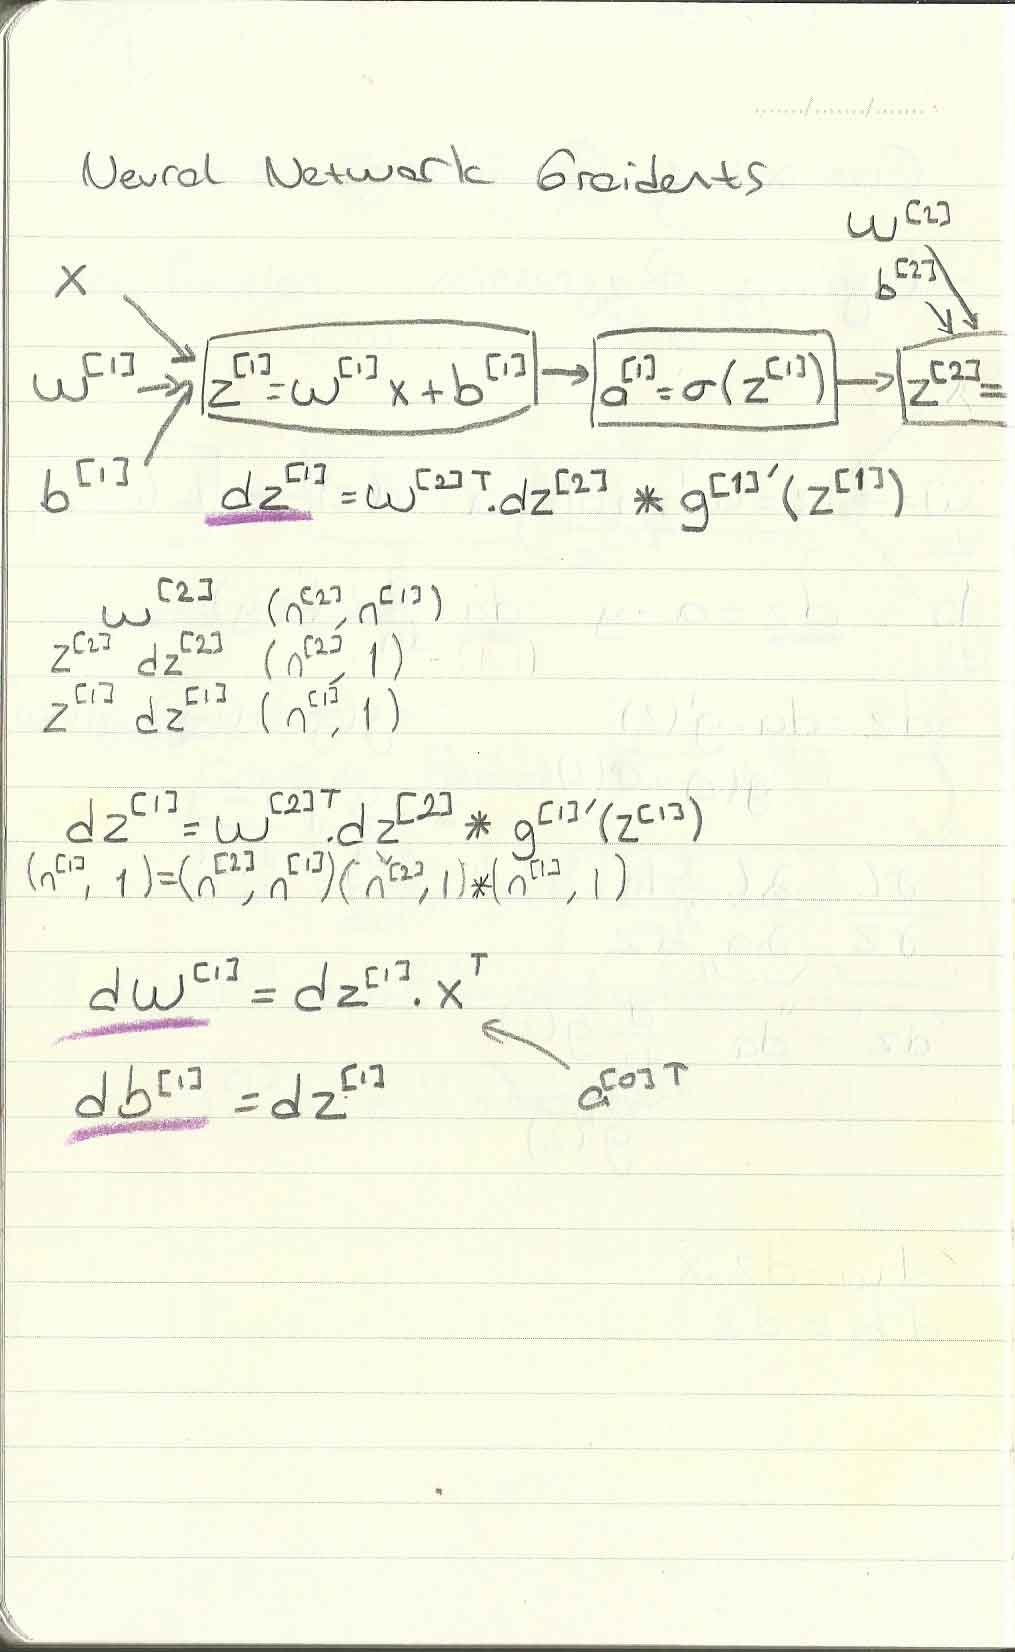 Neural Network Graidents
W[2]
b[2]
X
W[1]
z[1] = W[1] x + b[1]
a[1] = σ(z[1])
z[2] =
b[1]
dz[1] = W[2]T . dz[2] * g[1]'(z[1])
W[2] (n[2], n[1])
z[2] dz[2] (n[2], 1)
z[1] dz[1] (n[1], 1)
dz[1] = W[2]T . dz[2] * g[1]'(z[1])
(n[1], 1) = (n[2], n[1]) (n[2], 1) * (n[1], 1)
dW[1] = dz[1] . xT
a[0]T
db[1] = dz[1]